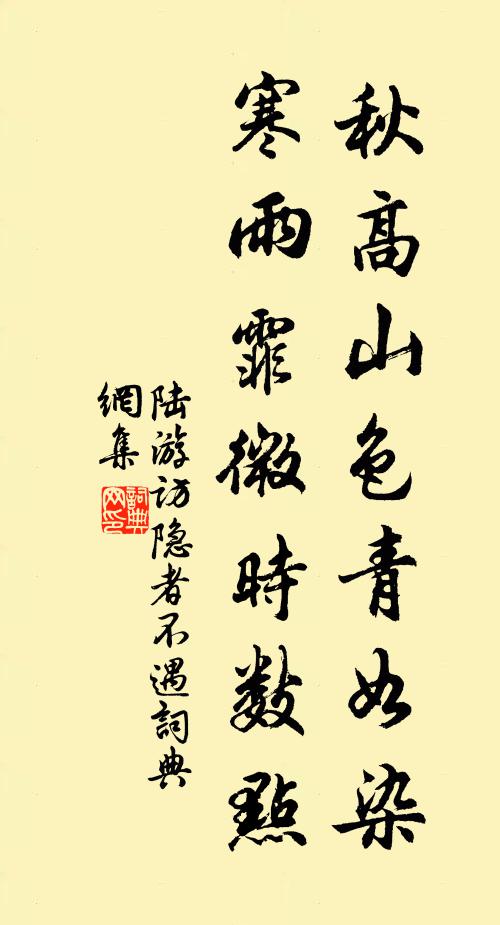 秋高山色青如染
寒雨霏微時数點
陆游访隐者不遇詞典
網集
詞典
网印